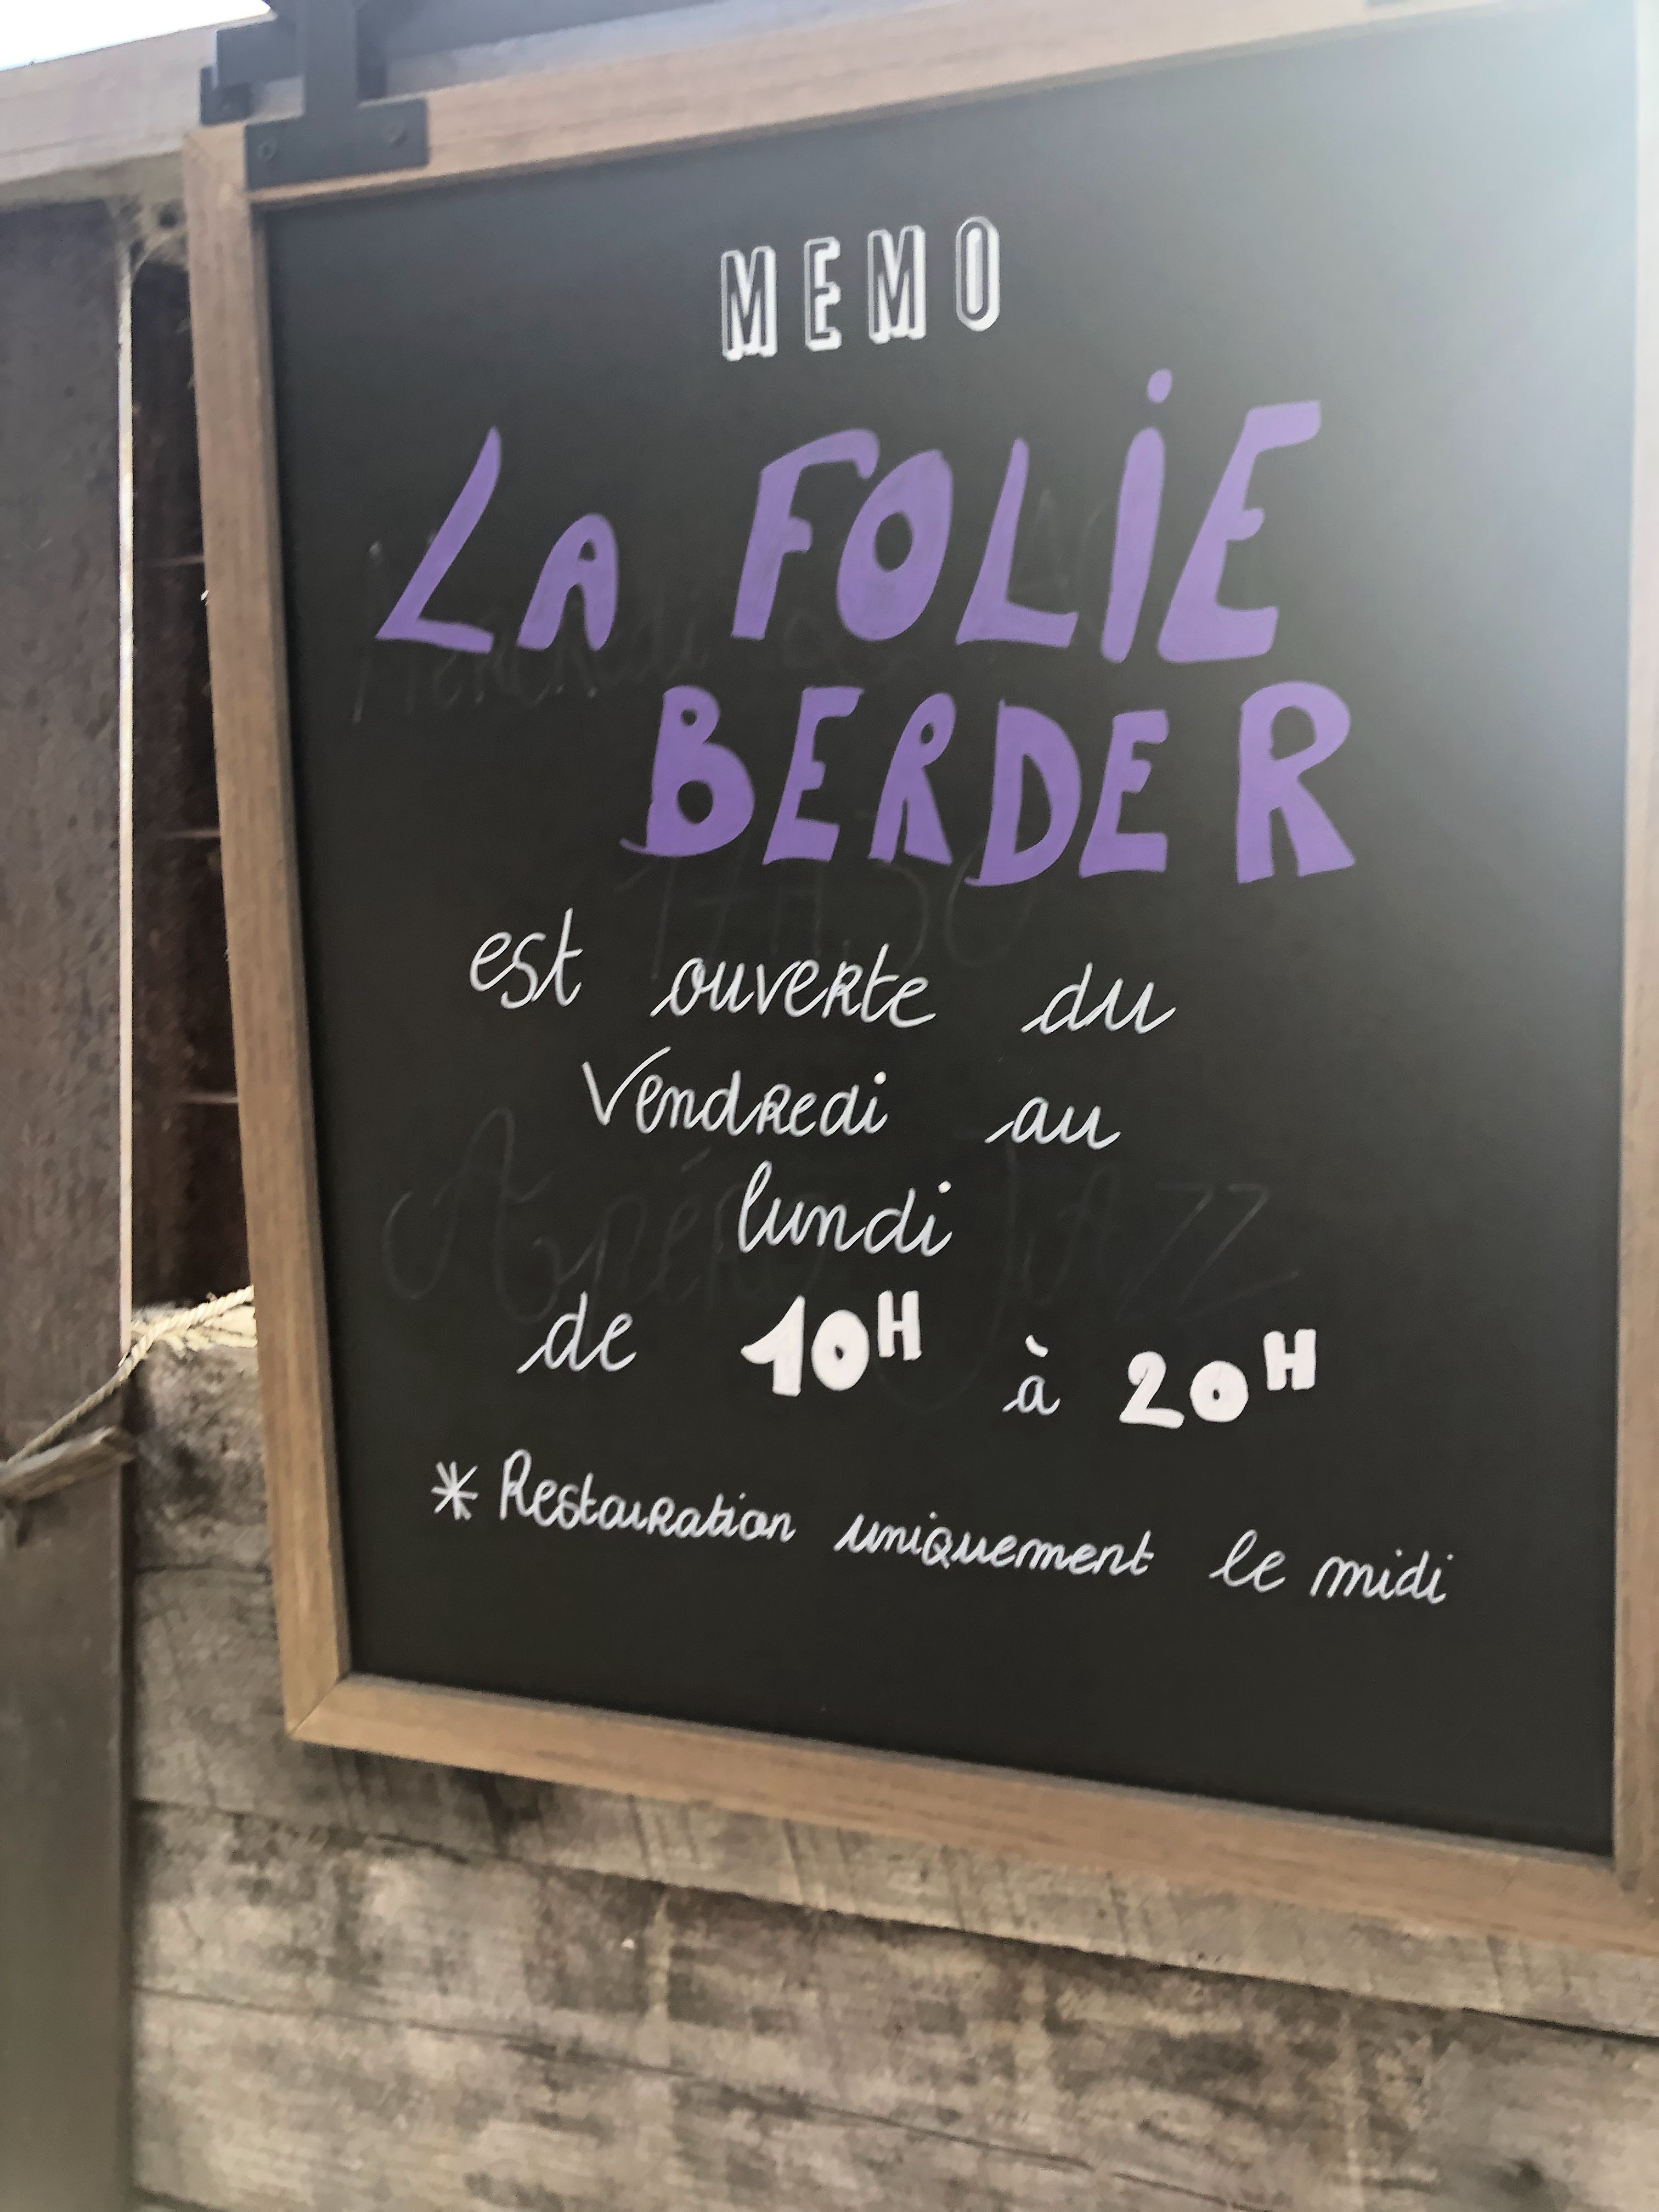 MEMO
LA FOLiE
BERDER
est ouverte du
Vendredi au
lundi
de 10H à 20H
* Restauration uniquement le midi